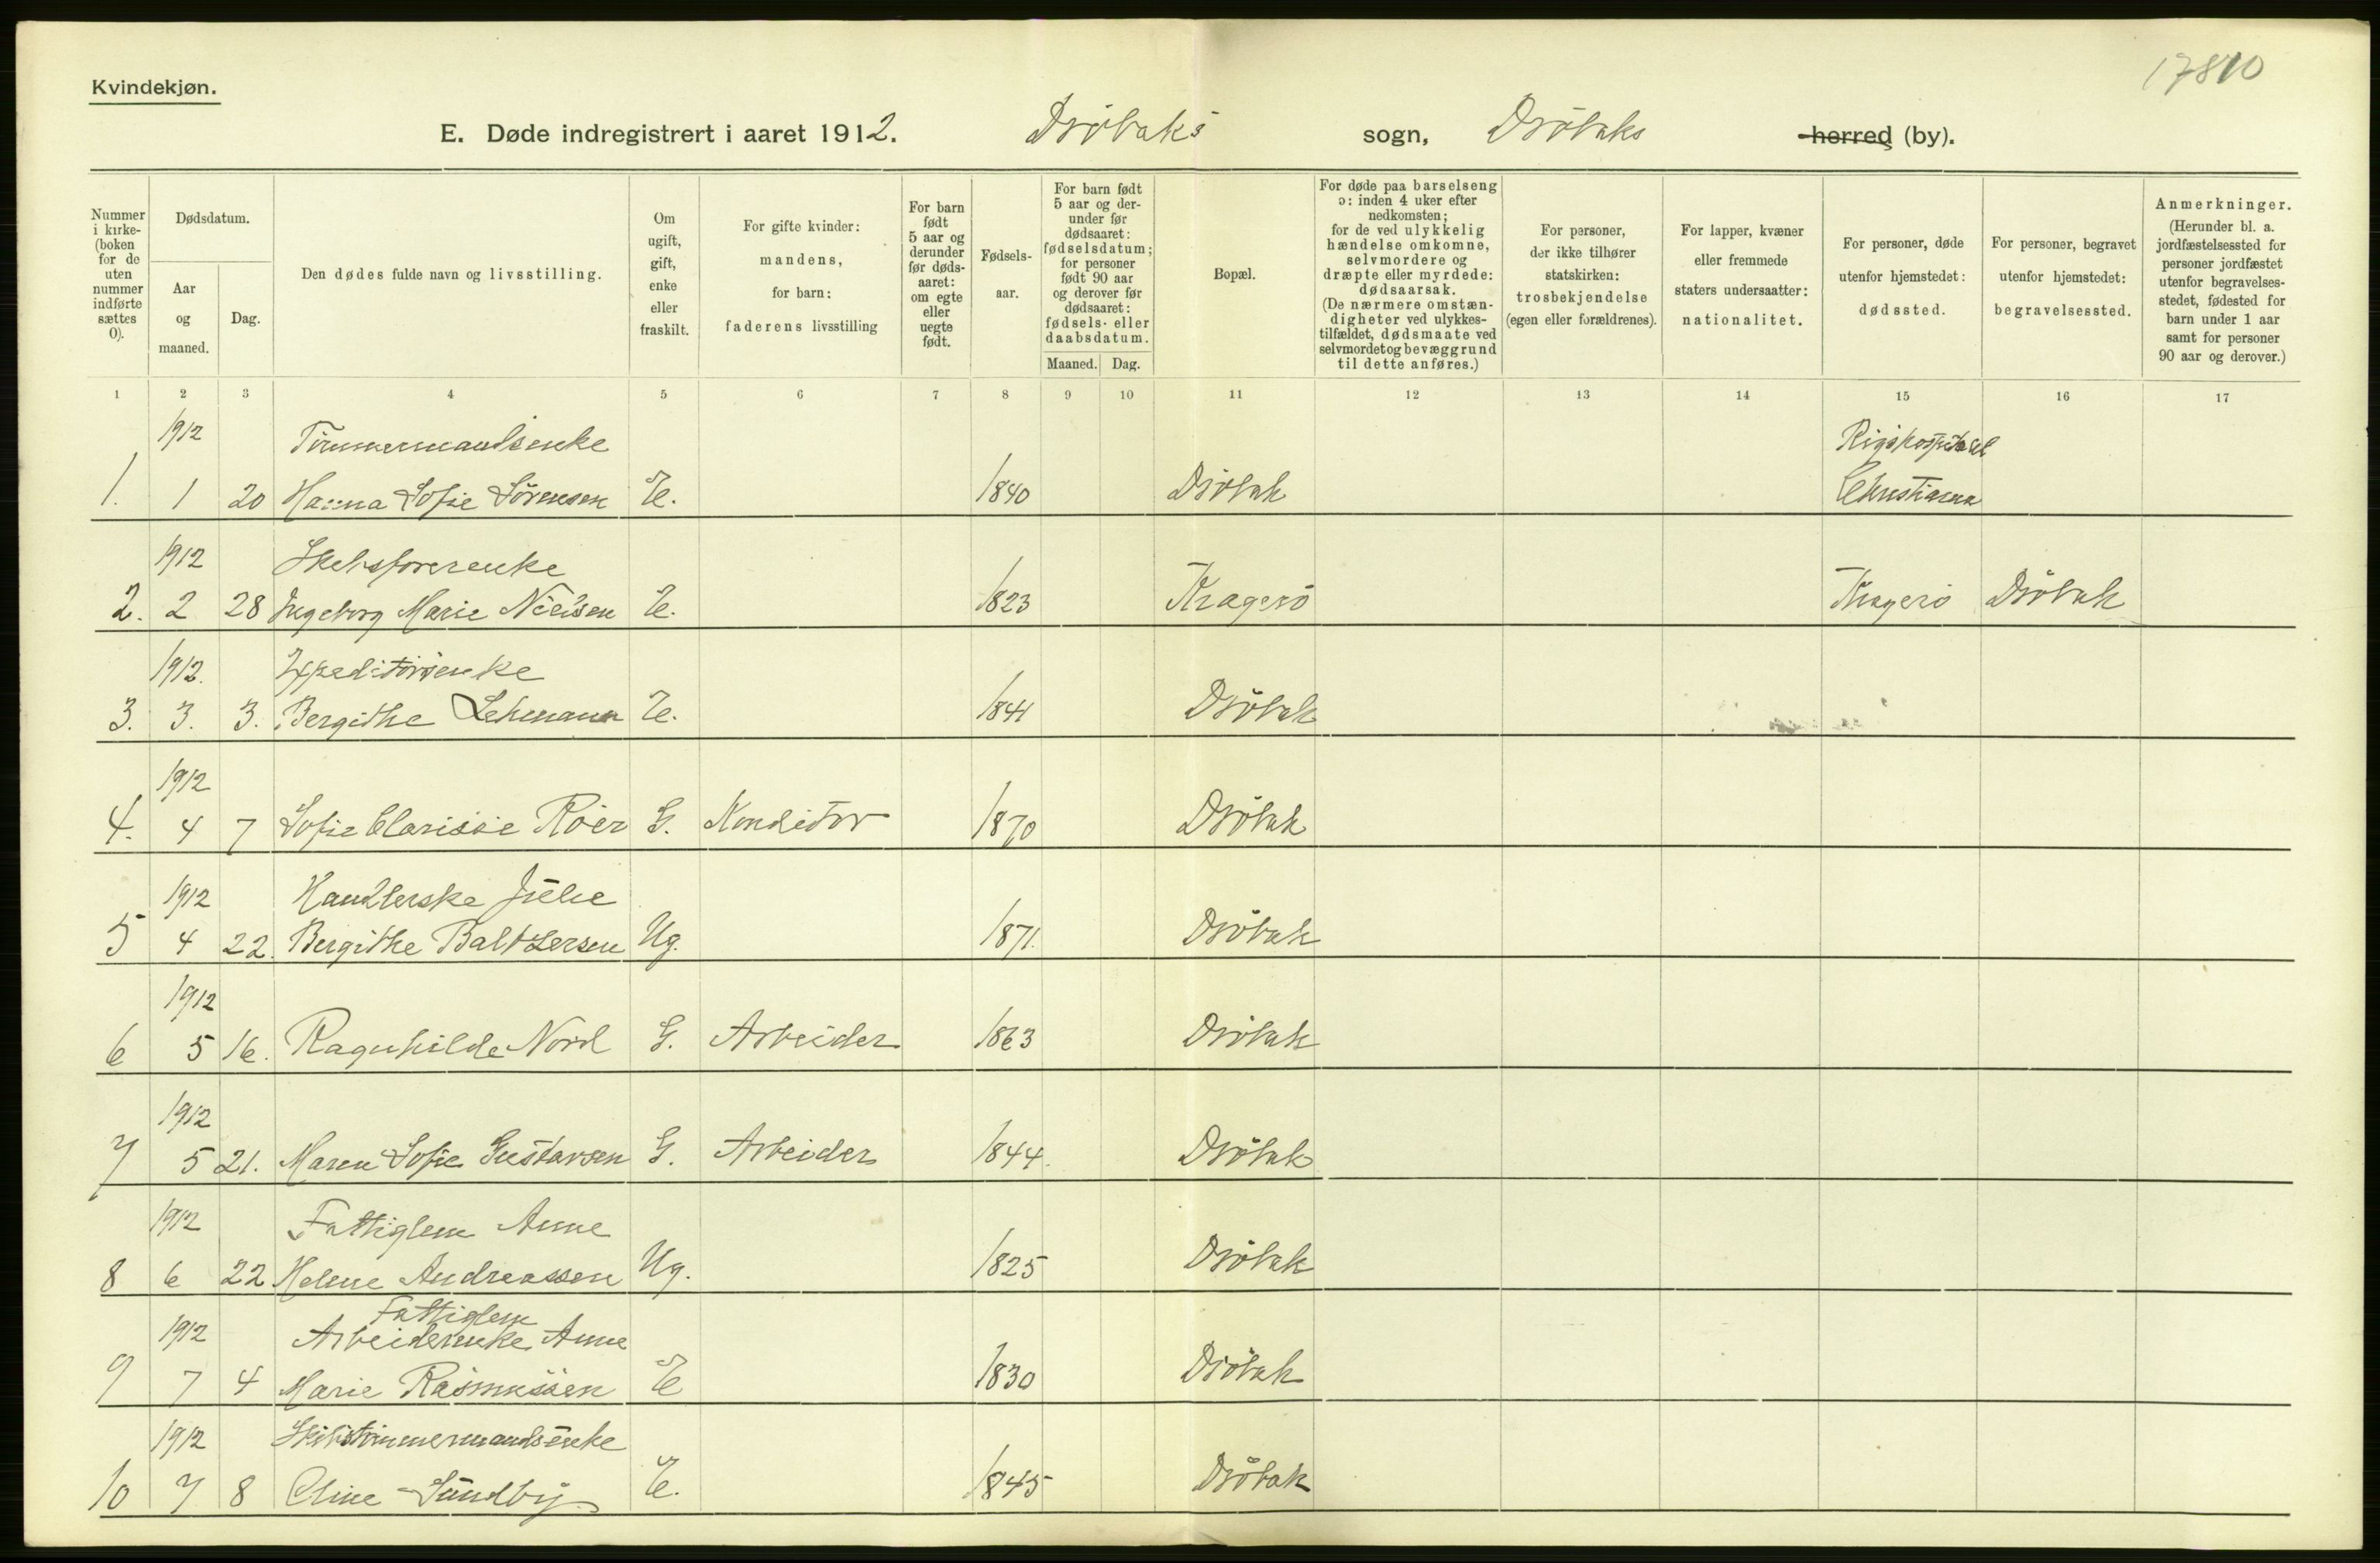 17810
Kvindekjøn.
E. Døde indregistrert i aaret 1912. Drøbaks sogn, Drøbaks herred (by).
Nummer i kirke- (boken for de uten nummer indførte sættes 0).
Dødsdatum.
Aar og maaned.
Dag.
Den dødes fulde navn og livsstilling.
Om ugift, gift, enke eller fraskilt.
For gifte kvinder: mandens, for barn: faderens livsstilling
For barn født 5 aar og derunder før døds- aaret: om egte eller uegte født.
Fødsels- aar.
For barn født 5 aar og der- under før dødsaaret: fødselsdatum; for personer født 90 aar og derover før dødsaaret: fødsels- eller daabsdatum.
Maaned. Dag.
Bopæl.
For døde paa barselseng ɔ: inden 4 uker efter nedkomsten; for de ved ulykkelig hændelse omkomne, selvmordere og dræpte eller myrdede: dødsaarsak. (De nærmere omstæn- digheter ved ulykkes- tilfældet, dødsmaate ved selvmordet og bevæggrund til dette anføres.)
For personer, der ikke tilhører statskirken: trosbekjendelse (egen eller forældrenes).
For lapper, kvæner eller fremmede staters undersaatter: nationalitet.
For personer, døde utenfor hjemstedet: dødssted.
For personer, begravet utenfor hjemstedet: begravelsessted.
Anmerkninger. (Herunder bl. a. jordfæstelsessted for personer jordfæstet utenfor begravelses- stedet, fødested for barn under 1 aar samt for personer 90 aar og derover.)
1 2 3 4 5 6 7 8 9 10 11 12 13 14 15 16 17
1912 Tømmermandsenke Rigshospitalet
1. 1 20 Hanna Sofie Sørensen E. 1840 Drøbak Christiania
1912 Skibsførerenke
2. 2 28 Ingeborg Marie Nielsen E. 1823 Kragerø Kragerø Drøbak
1912. Expeditørsenke
3. 3. 3. Bergithe Lehmann E. 1841 Drøbak
1912
4. 4 7 Sofie Clarisse Røer G. Konditor 1870 Drøbak
1912 Handlerske Julie
5 4 22. Bergithe Baltzersen Ug. 1871. Drøbak
1912
6 5 16. Ragnhilde Nord G. Arbeider 1863 Drøbak
1912
7 5 21. Maren Sofie Gustavsen G. Arbeider 1844. Drøbak
1912 Fattiglem Anne
8 6 22 Helene Andreassen Ug. 1825 Drøbak
Fattiglem
1912 Arbeiderenke Anne
9 7 4 Marie Rasmussen E 1830 Drøbak
1912 Skibstømmermandsenke
10 7 8 Oline Sundby E. 1845 Drøbak